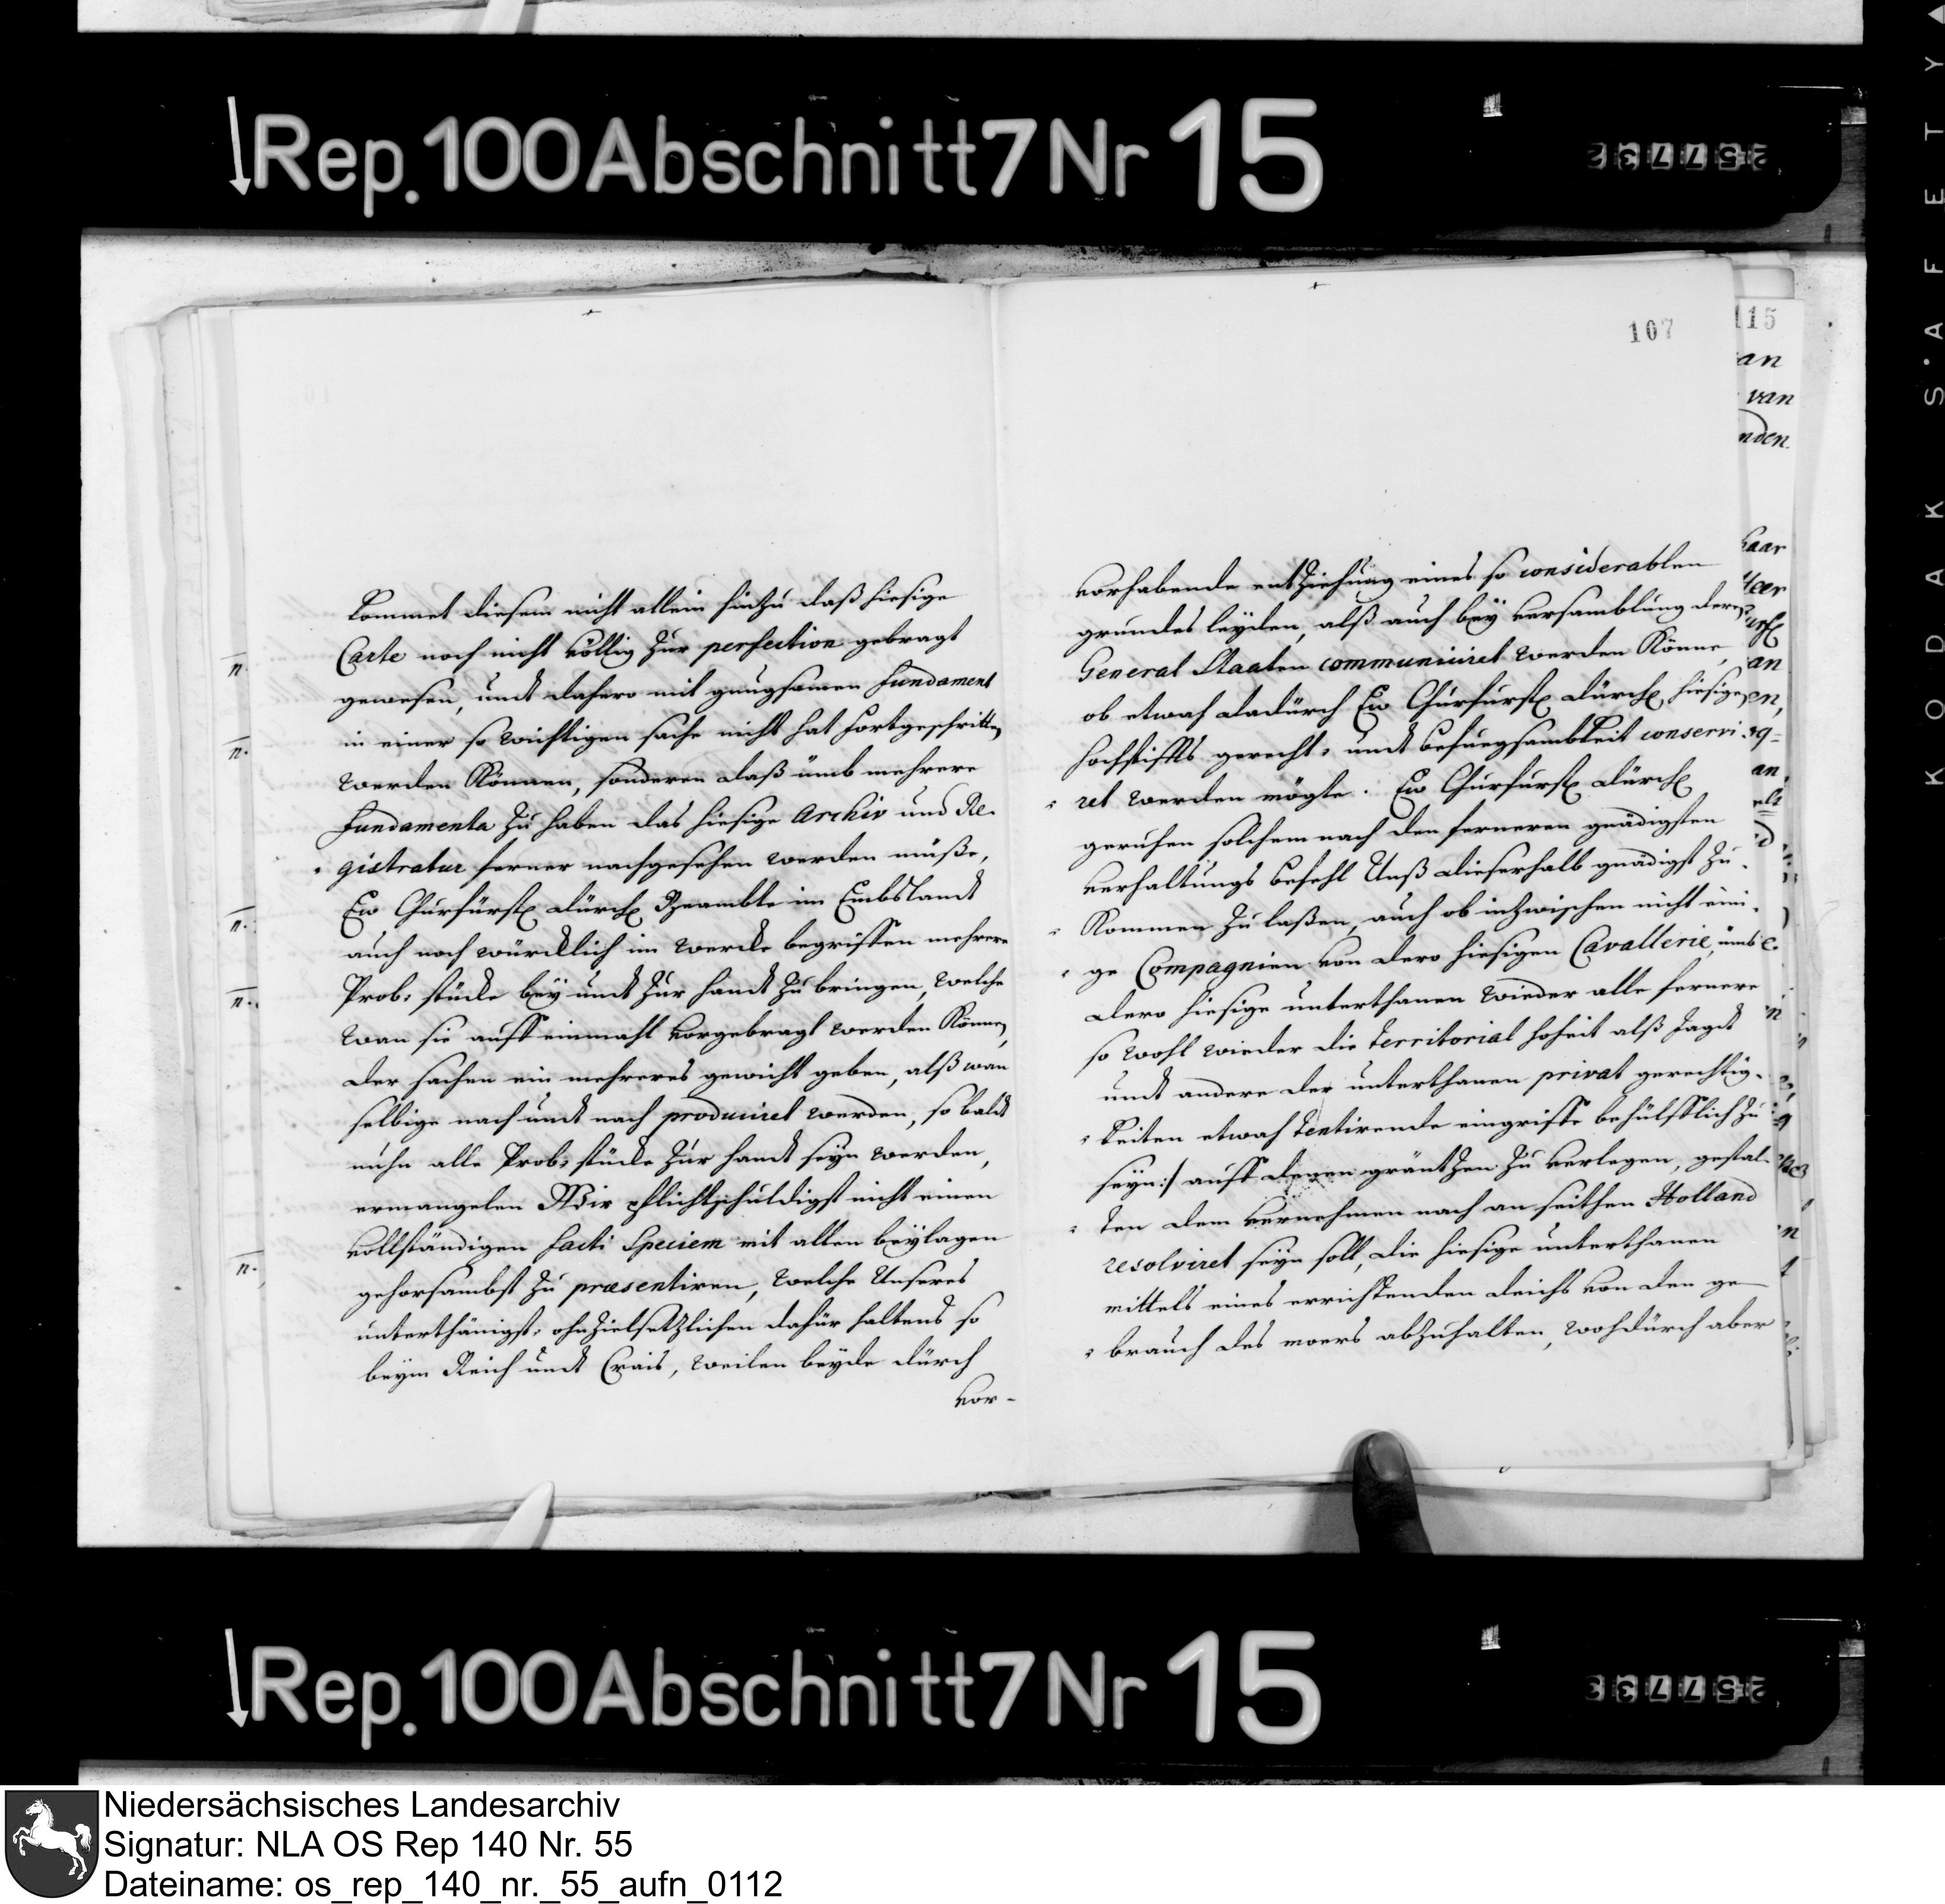 Rep.100Abschnitt7Nr 15
107
115
Kommet diesem nicht allein hinzu daß hiesige
Carte noch nicht völlig zur perfection gebragt
gewesen, undt dahero mit gnugsamen Fundament
in einer so wichtigen sache nicht hat fortgeschritten
werden können, sonderen daß umb mehrere
Fundamenta zu haben das hiesige Archiv und Re-
gistratur ferner nachgesehen werden müße,
Ew Churfürstl dürchl Beambte im Embslandt
auch noch würcklich im wercke begriffen mehrere
Prob-stücke beÿ undt zur handt zu bringen, welche
wan sie auff einmahl vorgebragt werden können,
der sachen ein mehreres gewicht geben, alß wan
selbige nach undt nach produciret werden, so baldt
nuhn alle Prob-stücke zur handt seyn werden,
ermangelen Wir pflichtschuldigst nicht einen
vollständigen facti Speciem mit allen beÿlagen
gehorsambst zu præsentiren, welche Unseres
unterthänigst-ohnzielsetzlichen dafür haltens so
beym Reich undt Crais, weilen beyde dürch
vor-
vorhabende entziehung eines so considerablen
grundes leyden, alß auch beÿ versamblung deren
General Staaten communiciret werden könne,
ob etwah dadürch Ew Churfurstl dürchl hiesigen
hochstiffts gerecht- undt befuegsambkeit conservi-
ret werden mögte. Ew Churfurstl dürchl
geruhen solchem nach den ferneren gnädigsten
verhaltungs befehl Unß dieserhalb gnädigst zu-
kommen zu laßen, auch ob inzwischen nicht eini-
ge Compagnien von dero hiesigen Cavallerie, umb
dero hiesige unterthanen wieder alle fernere
so wohl wieder die territorial hoheit alß Jagdt
undt andere der unterthanen privat gerechtig-
keiten etwah tentirende eingriffe behülfflich zu
seyn:/ auff denen gräntzen zu verlegen, gestal-
ten dem vernehmen nach an seithen Holland
resolviret seyn soll, die hiesige unterthanen
mittels eines errichtenden deichs von den ge-
brauch des moers abzuhalten, wohdürch aber
Rep.100Abschnitt7Nr 15
KODAK SAFETY
Niedersächsisches Landesarchiv
Signatur: NLA OS Rep 140 Nr. 55
Dateiname: os_rep_140_nr._55_aufn_0112